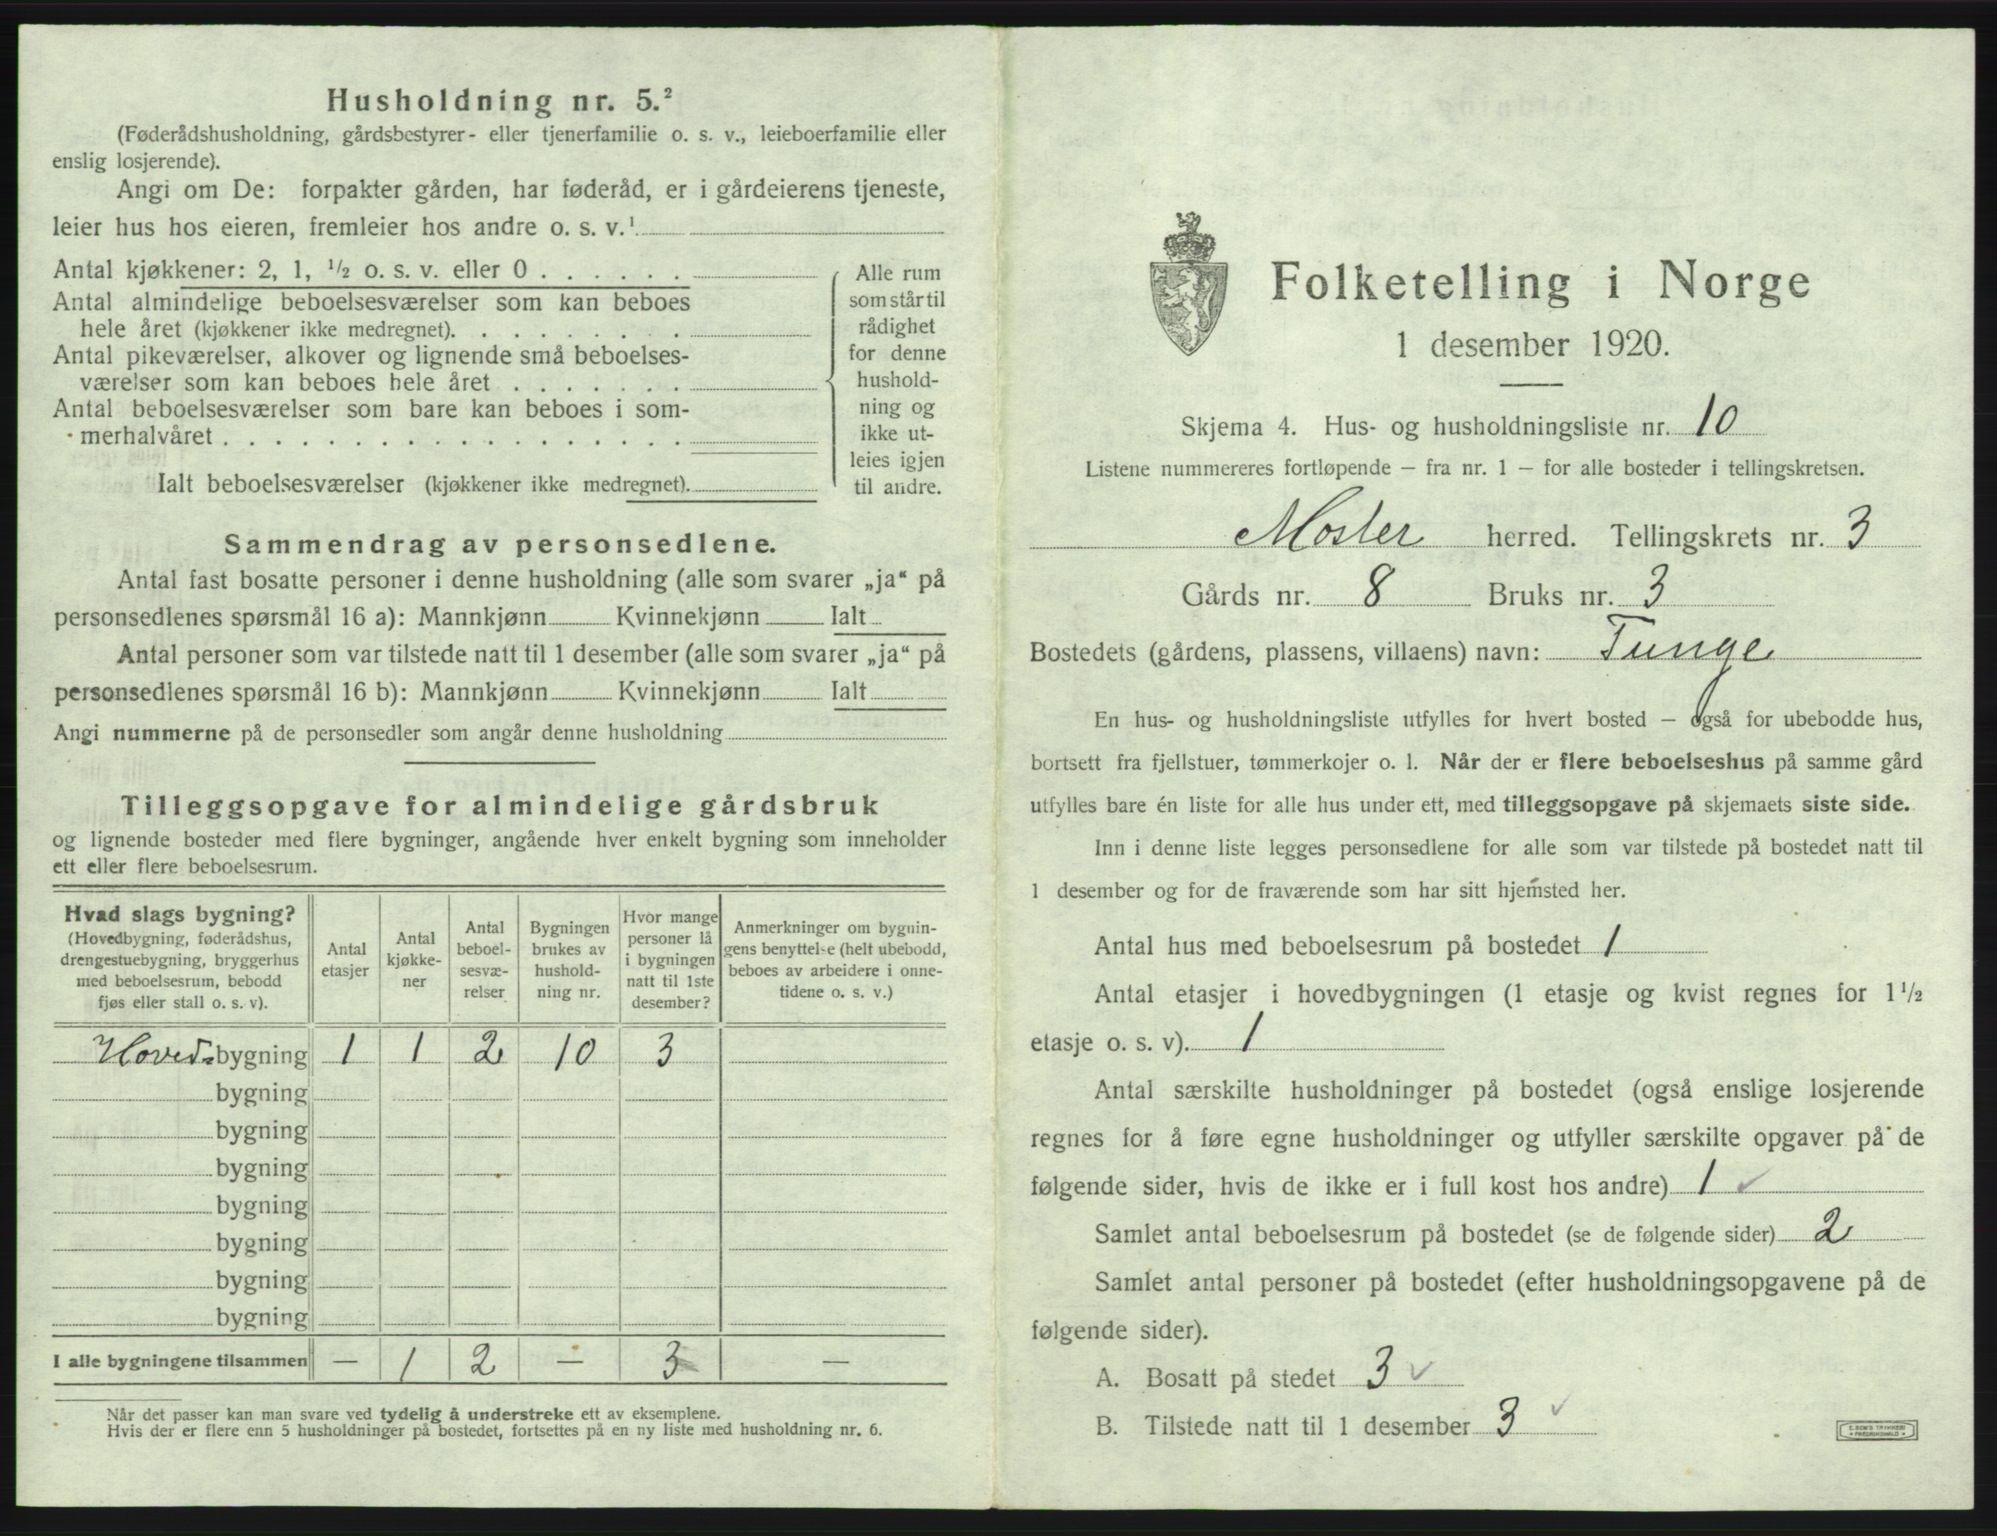 Husholdning nr. 5.²
(Føderådshusholdning, gårdsbestyrer- eller tjenerfamilie o. s. v., leieboerfamilie eller
enslig losjerende).
Angi om De: forpakter gården, har føderåd, er i gårdeierens tjeneste,
leier hus hos eieren, fremleier hos andre o. s. v.¹
Antal kjøkkener: 2, 1, ½ o. s. v. eller 0 . . . . . .
Antal almindelige beboelsesværelser som kan beboes
hele året (kjøkkener ikke medregnet). . . . . . . . .
Antal pikeværelser, alkover og lignende små beboelses-
værelser som kan beboes hele året . . . . . . .
Antal beboelsesværelser som bare kan beboes i som-
merhalvåret . . . . . . . . . . . . . . . . . .
Ialt beboelsesværelser (kjøkkener ikke medregnet).
Alle rum
som står til
rådighet
for denne
hushold-
ning og
ikke ut-
leies igjen
til andre.
Sammendrag av personsedlene.
Antal fast bosatte personer i denne husholdning (alle som svarer „ja“ på
personsedlenes spørsmål 16 a): Mannkjønn Kvinnekjønn Ialt
Antal personer som var tilstede natt til 1 desember (alle som svarer „ja“ på
personsedlenes spørsmål 16 b): Mannkjønn Kvinnekjønn Ialt
Angi nummerne på de personsedler som angår denne husholdning
Tilleggsopgave for almindelige gårdsbruk
og lignende bosteder med flere bygninger, angående hver enkelt bygning som inneholder
ett eller flere beboelsesrum.
Hvad slags bygning?
(Hovedbygning, føderådshus,
drengestuebygning, bryggerhus
med beboelsesrum, bebodd
fjøs eller stall o. s. v).
Antal
etasjer
Antal
kjøkke-
ner
Antal
beboel-
sesvæ-
relser
Bygningen
brukes av
hushold-
ning nr.
Hvor mange
personer lå
i bygningen
natt til 1ste
desember?
Anmerkninger om bygnin-
gens benyttelse (helt ubebodd,
beboes av arbeidere i onne-
tidene o. s. v.)
Hoveds bygning 1 1 2 10 3
bygning
bygning
bygning
bygning
bygning
bygning
bygning
I alle bygningene tilsammen — 1 2 — 3 —
Når det passer kan man svare ved tydelig å understreke ett av eksemplene.
Hvis der er flere enn 5 husholdninger på bostedet, fortsettes på en ny liste med husholdning nr. 6.
Folketelling i Norge
1 desember 1920.
Skjema 4. Hus- og husholdningsliste nr. 10
Listene nummereres fortløpende — fra nr. 1 — for alle bosteder i tellingskretsen.
Moster herred. Tellingskrets nr. 3
Gårds nr. 8 Bruks nr. 3
Bostedets (gårdens, plassens, villaens) navn: Tunge
En hus- og husholdningsliste utfylles for hvert bosted — også for ubebodde hus,
bortsett fra fjellstuer, tømmerkojer o. l. Når der er flere beboelseshus på samme gård
utfylles bare én liste for alle hus under ett, med tilleggsopgave på skjemaets siste side.
Inn i denne liste legges personsedlene for alle som var tilstede på bostedet natt til
1 desember og for de fraværende som har sitt hjemsted her.
Antal hus med beboelsesrum på bostedet 1
Antal etasjer i hovedbygningen (1 etasje og kvist regnes for 1½
etasje o. s. v). 1
Antal særskilte husholdninger på bostedet (også enslige losjerende
regnes for å føre egne husholdninger og utfyller særskilte opgaver på de
følgende sider, hvis de ikke er i full kost hos andre) 1 ✓
Samlet antal beboelsesrum på bostedet (se de følgende sider) 2
Samlet antal personer på bostedet (efter husholdningsopgavene på de
følgende sider).
A. Bosatt på stedet 3 ✓
B. Tilstede natt til 1 desember 3 ✓